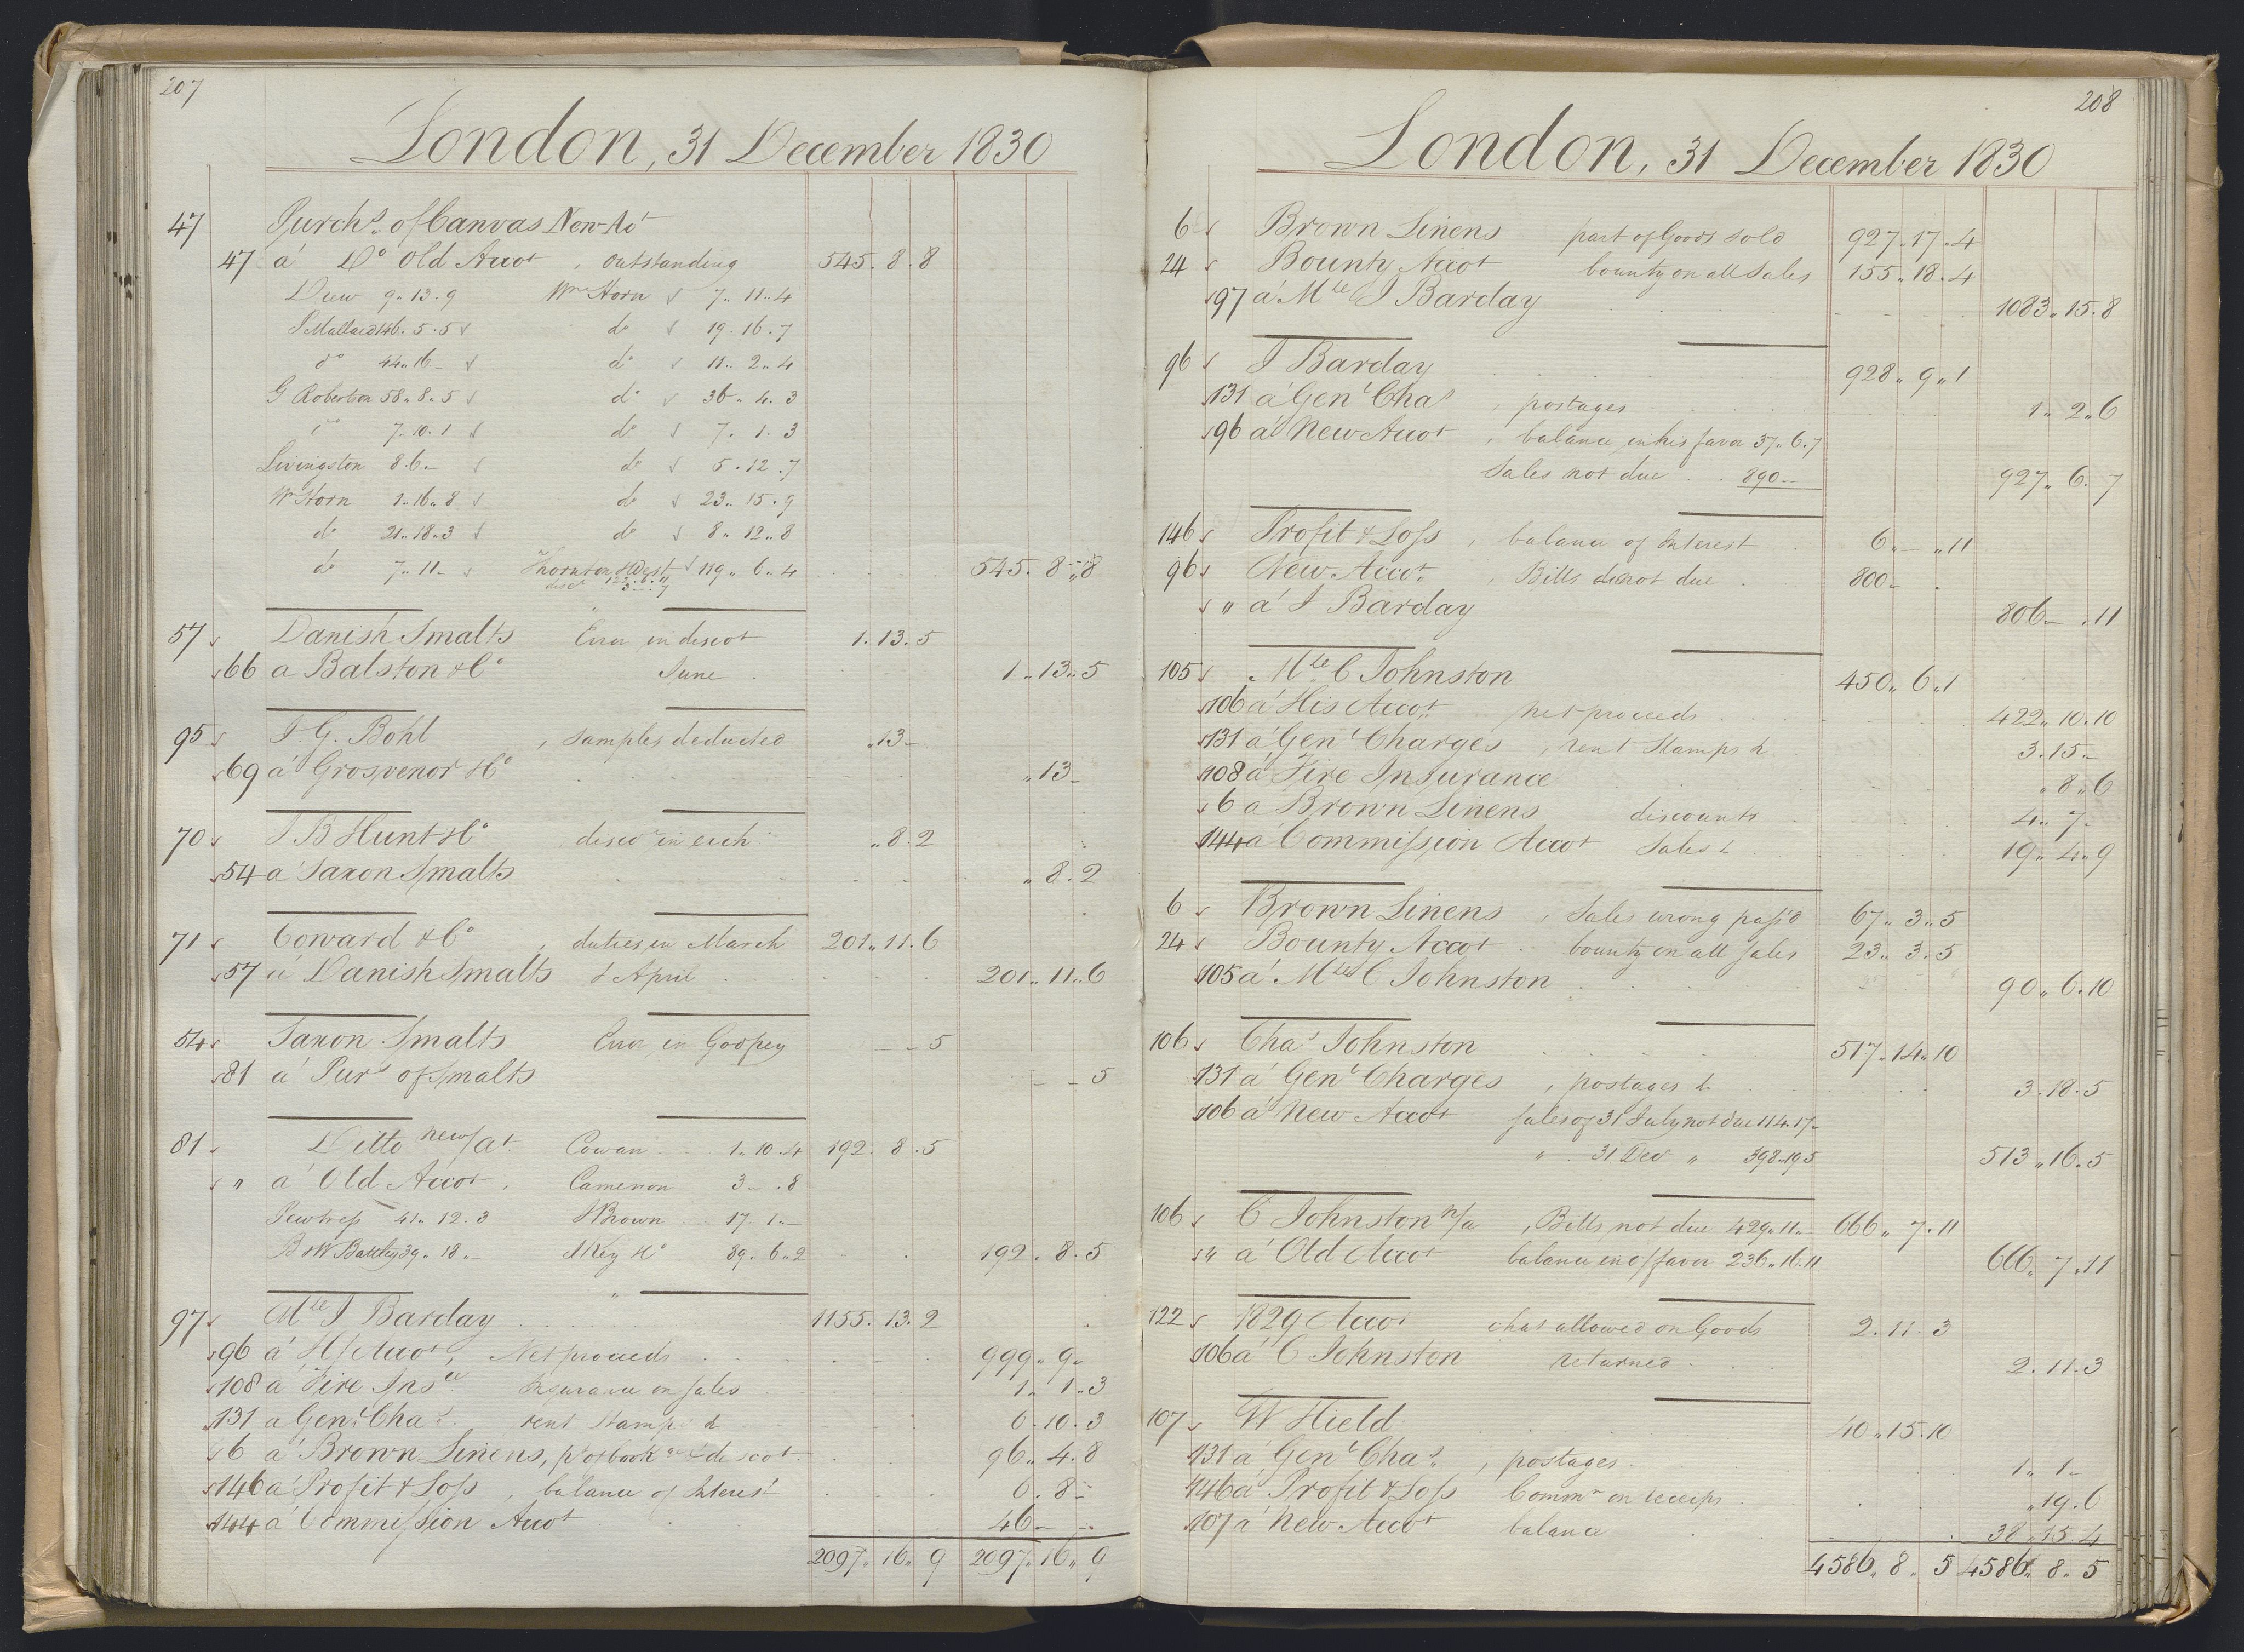 207
London, 31 December 1830
47 Purchs. of Canvas New Act
47 a Do Old Accot, outstanding 545. 8. 8
Duw 9. 13. 9 Wm Horn 7. 11. 4
S Mallard 146. 5. 5 do 19. 16. 7
do 44. 16 – do 11. 2. 4
G Robertson 58. 8. 5 do 36. 4. 3
do 7. 10. 1 do 7. 1. 3
Livingston 8. 6 – do 5. 12. 7
Wm Horn 1. 16. 8 do 23. 15. 9
do 21. 18. 3 do 8. 12. 8
do 7. 11 – Thornton & West 119. 6. 4 545. 8. 8
disct 3. –. 7
57 Danish Smalts Error in discot 1. 13. 5
66 a Balston & Co June 1. 13. 5
95 J G. Bohl, samples deducted " 13 –
69 a Grosvenor & Co " 13 –
70 J B Hunt & Co disco in each " 8. 2
54 a Saxon Smalts " 8. 2
71 Coward & Co, duties in March 201. 11. 6
57 a Danish Smalts & April 201. 11. 6
54 Saxon Smalts Error in Goospey – – 5
81 a Purs of Smalts – – 5
81 Ditto new/at. Cowan 1. 10. 4 192. 8. 5
" a Old Accot. Cameron 3 –. 8
Pewtress 41. 12. 3 Brown 17. 1. –
B & W Balley 39. 18. – Key & Co 89. 6. 2 192. 8. 5
97 Mle J Barclay 1155. 13. 2
96 a H/Accot, Net proceeds 999. 9 –
108 a Fire Insce Insurance on sales 1. 1. 3
131 a Genl Chas. rent stamps & 0. 10. 3
6 a Brown Linens, discot 96. 4. 8
146 a Profit & Loss, balance of Interest 0. 8 –
144 a Commission Accot 46 – –
2097. 16. 9 2097. 16. 9
208
London, 31 December 1830
6 Brown Linens part of Goods sold 927. 17. 4
24 Bounty Accot bounty on all Sales 155. 18. 4
97 a Mle J Barclay 1083. 15. 8
96 J Barclay 928. 9. 1
131 a Genl Chas, postages 1. 2. 6
96 a New Accot, balance in his favor 37. 6. 7
Sales not due 890 – 927. 6. 7
146 Profit & Loss, balance of Interest 6. –. 11
96 New Accot., Bills not due 800 –
" a J Barclay 806 –. 11
105 Mle C Johnston 450. 6. 1
106 a His Accot. net proceeds 422. 10. 10
131 a Genl Charges, rent Stamps & 3. 15. –
108 a Fire Insurance " 8. 6
6 a Brown Linens discounts 4. 7 –
144 a Commission Accot Sales & 19. 4. 9
6 Brown Linens, Sales wrong pass'd 67. 3. 5
24 Bounty Accot bounty on all sales 23. 3. 5
105 a Mle C Johnston 90. 6. 10
106 Chas Johnston 517. 14. 10
131 a Genl Charges, postages & 3. 18. 5
106 a New Accot sales of 31 July not due 114. 17 –
" 31 Dec " 398. 19. 5 513. 16. 5
106 C Johnston n/a, Bills not due 429. 11. – 666. 7. 11
" a Old Accot balance in o/favor 236. 16. 11 666. 7. 11
122 1829 Accot chas allowed on Goods 2. 11. 3
106 a C Johnston returned 2. 11. 3
107 W Hield 40. 15. 10
131 a Genl Chas., postages 1. 1 –
146 a Profit & Loss Commn on receips " 19. 6
107 a New Accot balance 38. 15. 4
4586. 8. 5 4586. 8. 5